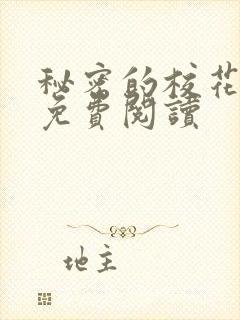 秘密的校花
免費閱讀
地主